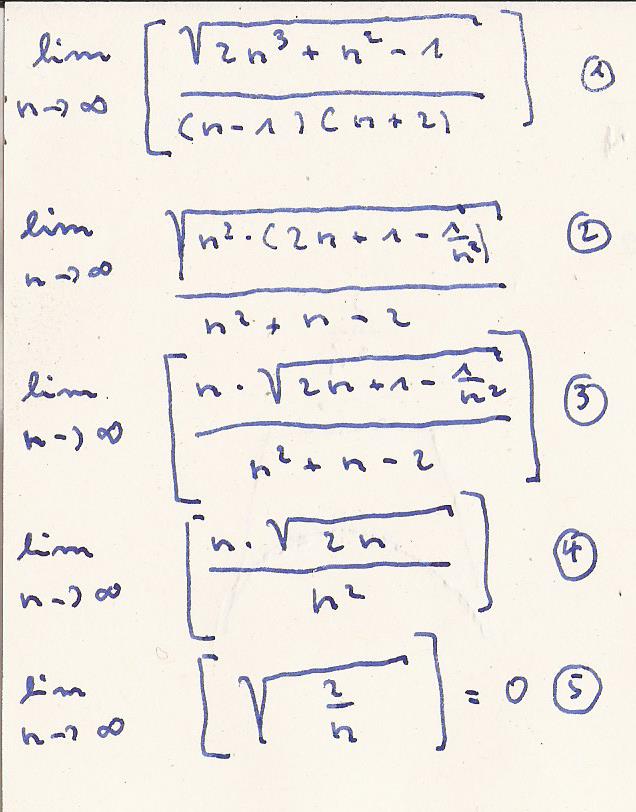 lim n→∞ [ √(2n³ + n² - 1) / (n-1)(n+2) ] ①
lim n→∞ √(n²·(2n + 1 - 1/n²)) / n² + n - 2 ②
lim n→∞ [ n·√(2n + 1 - 1/n²) / n² + n - 2 ] ③
lim n→∞ [ n·√(2n) / n² ] ④
lim n→∞ [ √(2/n) ] = 0 ⑤